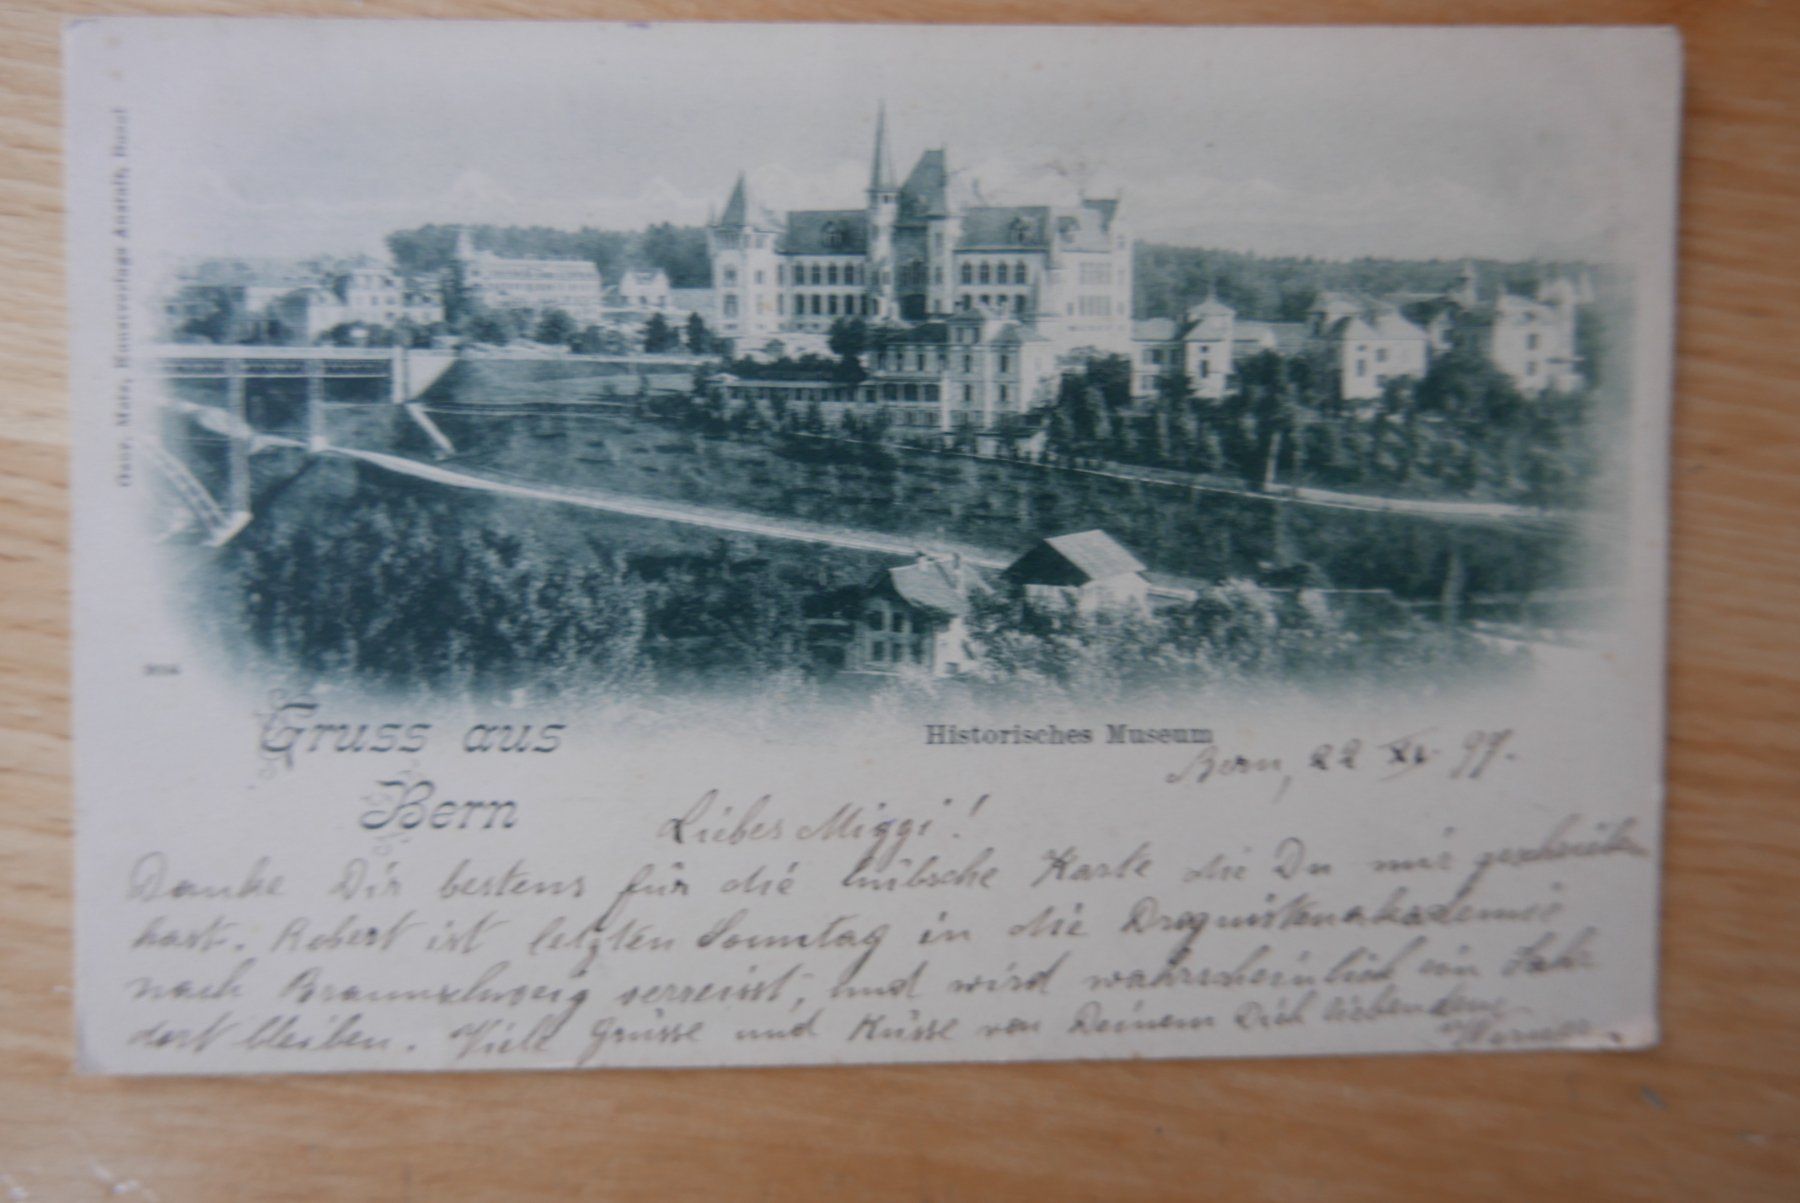 Gruss aus
Bern
Historisches Museum
Bern, 22 XI. 97.
Liebes Miggi!
Danke Dir bestens für die hübsche Karte die Du mir geschickt
hast. Robert ist letzten Sonntag in die Droguistenakademie
nach Braunschweig verreist, und wird wahrscheinlich ein Jahr
dort bleiben. Viele Grüsse und Küsse von Deinem Dich liebenden
Werner.
Kunstverlags Anstalt, Basel